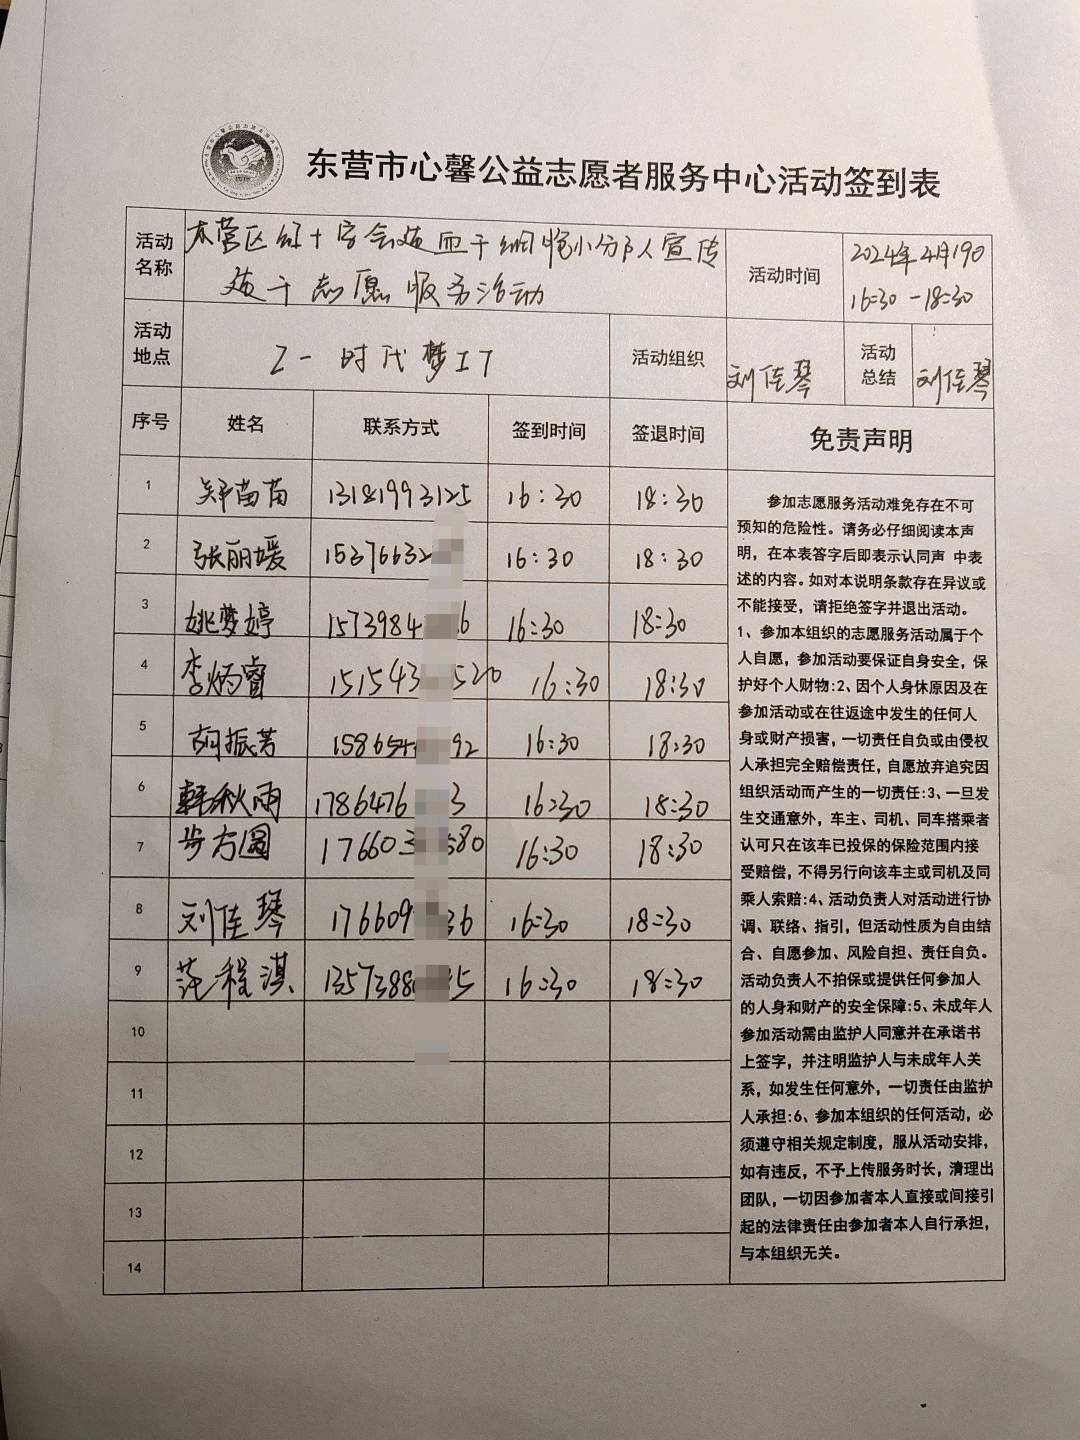 东营市心馨公益志愿者服务中心活动签到表
活动名称 东营区红十字会造血干细胞小分队宣传
造干志愿服务活动
活动时间 2024年4月19日
16:30-18:30
活动地点 Z一时代梦工厂 活动组织 刘佳琴 活动总结 刘佳琴
序号 姓名 联系方式 签到时间 签退时间 免责声明
1 郑苗苗 13181993125 16:30 18:30
2 张丽媛 15376632 16:30 18:30
3 姚梦婷 1573984 6 16:30 18:30
4 李炳睿 151543 520 16:30 18:30
5 胡振芳 158654 92 16:30 18:30
6 韩秋雨 1786476 3 16:30 18:30
7 步方圆 176603 580 16:30 18:30
8 刘佳琴 176609 36 16:30 18:30
9 范程淇 1357388 5 16:30 18:30
10
11
12
13
14
参加志愿服务活动难免存在不可
预知的危险性。请务必仔细阅读本声
明，在本表答字后即表示认同声 中表
述的内容。如对本说明条款存在异议或
不能接受，请拒绝签字并退出活动。
1、参加本组织的志愿服务活动属于个
人自愿，参加活动要保证自身安全，保
护好个人财物:2、因个人身休原因及在
参加活动或在往返途中发生的任何人
身或财产损害，一切责任自负或由侵权
人承担完全赔偿责任，自愿放弃追究因
组织活动而产生的一切责任:3、一旦发
生交通意外，车主、司机、同车搭乘者
认可只在该车已投保的保险范围内接
受赔偿，不得另行向该车主或司机及同
乘人索赔:4、活动负责人对活动进行协
调、联络、指引，但活动性质为自由结
合、自愿参加、风险自担、责任自负。
活动负责人不拍保或提供任何参加人
的人身和财产的安全保障:5、未成年人
参加活动需由监护人同意并在承诺书
上签字，并注明监护人与未成年人关
系，如发生任何意外，一切责任由监护
人承担:6、参加本组织的任何活动，必
须遵守相关规定制度，服从活动安排，
如有违反，不予上传服务时长，清理出
团队，一切因参加者本人直接或间接引
起的法律责任由参加者本人自行承担，
与本组织无关。